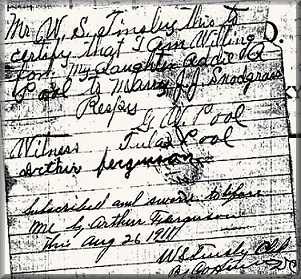 Mr. W. S. Tinsley this to
certify that I am Willing
for My Daughter Addie A
Pool to Marry J. J. Snodgrass
Respy
G W Pool
Witness Tula Pool
Arthur ferguson
Subscribed and sworn to before
me by Arthur Ferguson
this Aug 26 1911
W S Tinsley Clk
By